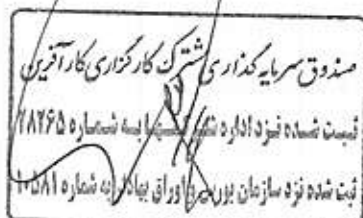 صندوق سرمایه گذاری مشترک کارگزاری کارآفرین
ثبت شده نزد اداره ثبت شرکتها به شماره ۱۸۲۶۵
ثبت شده نزد سازمان بورس و اوراق بهادار به شماره ۱۰۵۸۱